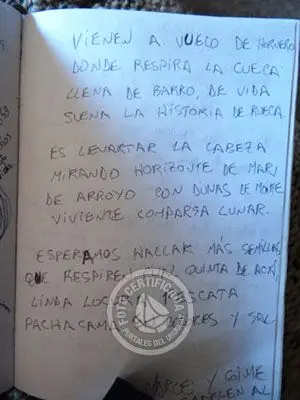 VIENEN A VUELO DE HORNERO
DONDE RESPIRA LA CUECA
LLENA DE BARRO, DE VIDA
SUENA LA HISTORIA DE RUECA
ES LEVARTAR LA CABEZA
MIRANDO HORIZONTE DE MAR,
DE ARROYO CON DUNAS DE MONTE
VIVIENTE COMPARSA LUNAR.
ESPERAMOS HALLAR MÁS SEMILLAS
QUE RESPIREN QUINTA DE ACÁ,
LINDA LOCURA RESCATA
Y SAL
FOTO CERTIFICADA
PORTALES DEL URUGUAY